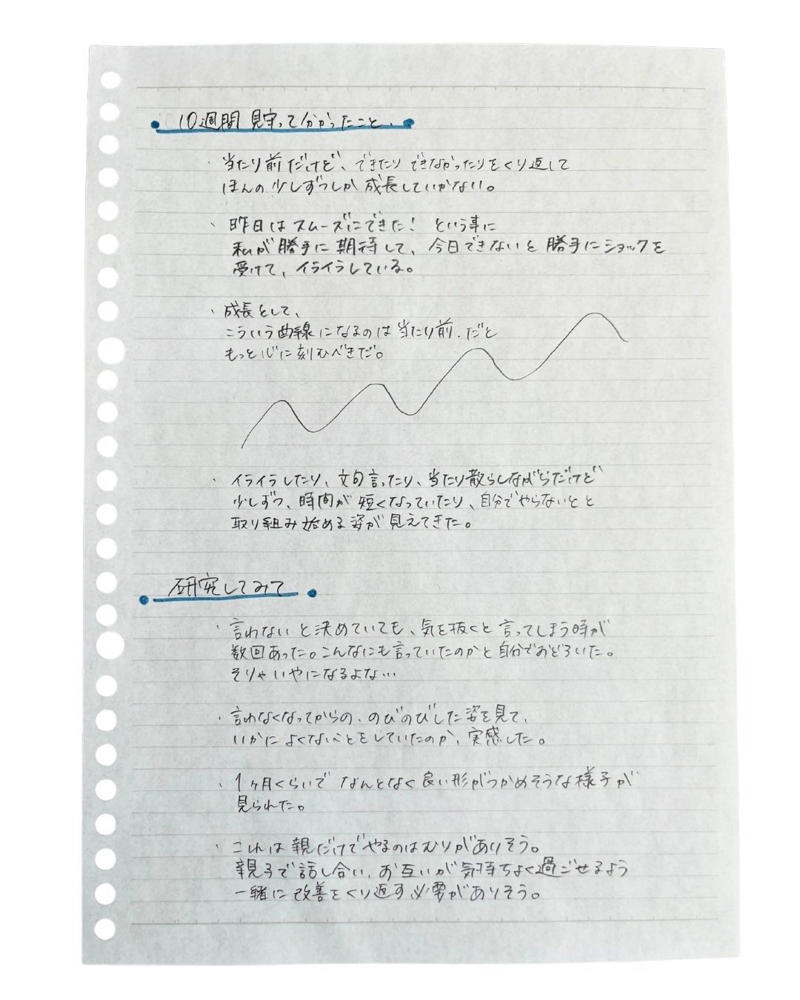 10週間 見守って分かったこと、
・当たり前だけど、できたり できなかったりをくり返して
ほんの少しずつしか 成長していかない。
・昨日はスムーズにできた! という事に
私が勝手に期待して、今日できないと 勝手にショックを
受けて、イライラしている。
・成長として、
こういう曲線になるのは当たり前.だと
もっと心に刻むべきだ。
・イライラしたり、文句言ったり、当たり散らしながらだけど
少しずつ、時間が短くなっていたり、自分でやらないとと
取り組み始める姿が見えてきた。
研究してみて
・言わないと決めていても、気を抜くと言ってしまう時が
数回あった。こんなにも言っていたのかと自分でおどろいた。
そりゃいやになるよな…
・言わなくなってからの、のびのびした姿を見て、
いかによくないことをしていたのか、実感した。
・1ヶ月くらいで なんとなく良い形がつかめそうな様子が
見られた。
・これは親だけでやるのはむりがありそう。
親子で話し合い、お互いが気持ちよく過ごせるよう
一緒に改善をくり返す必要がありそう。